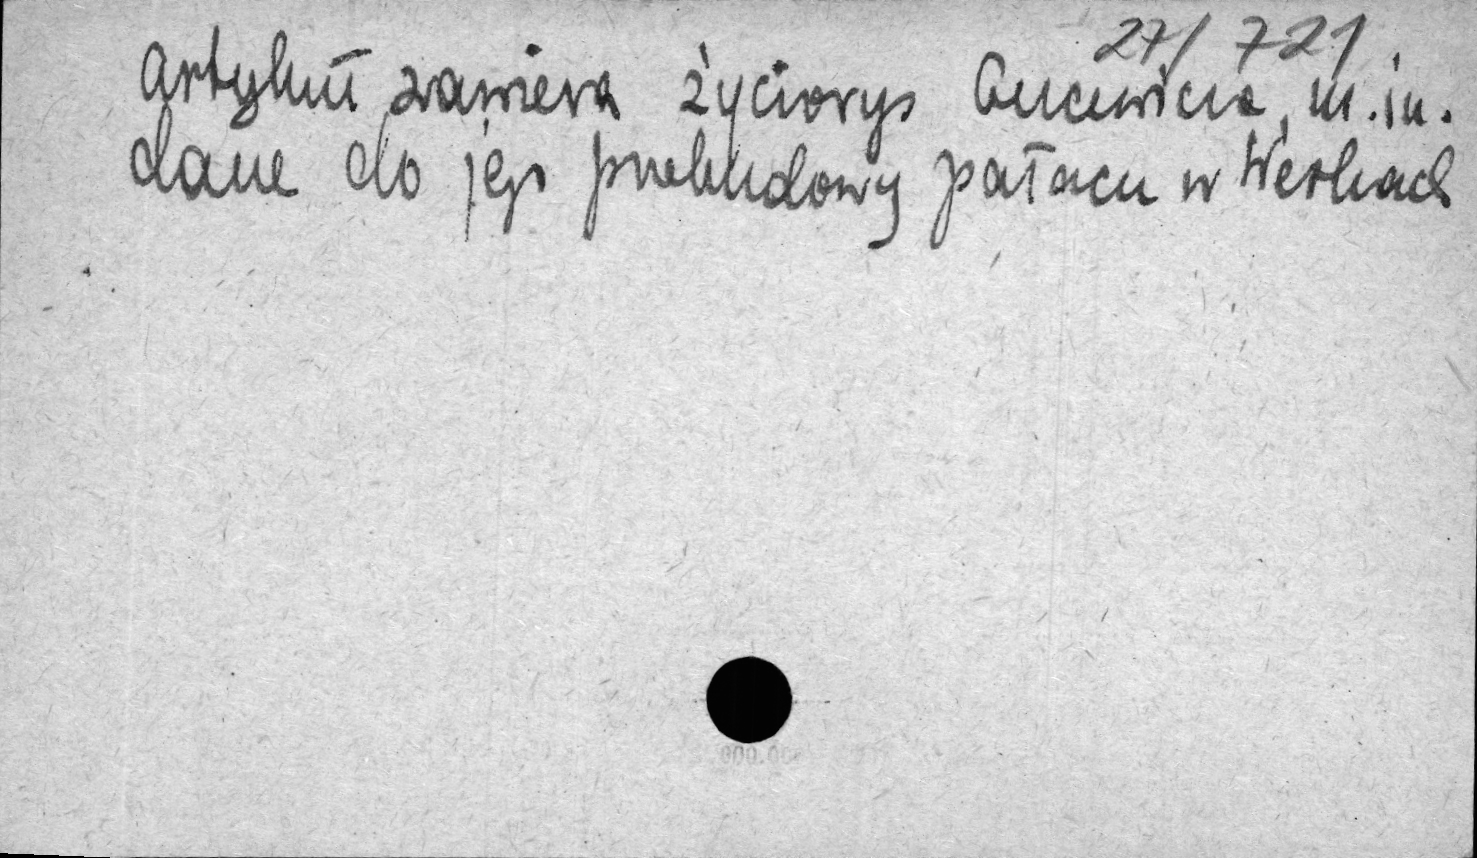 27/721
Artykuł zawiera życiorys Gucewicza, m.in.
dane do jego przebudowy pałacu w Werkach